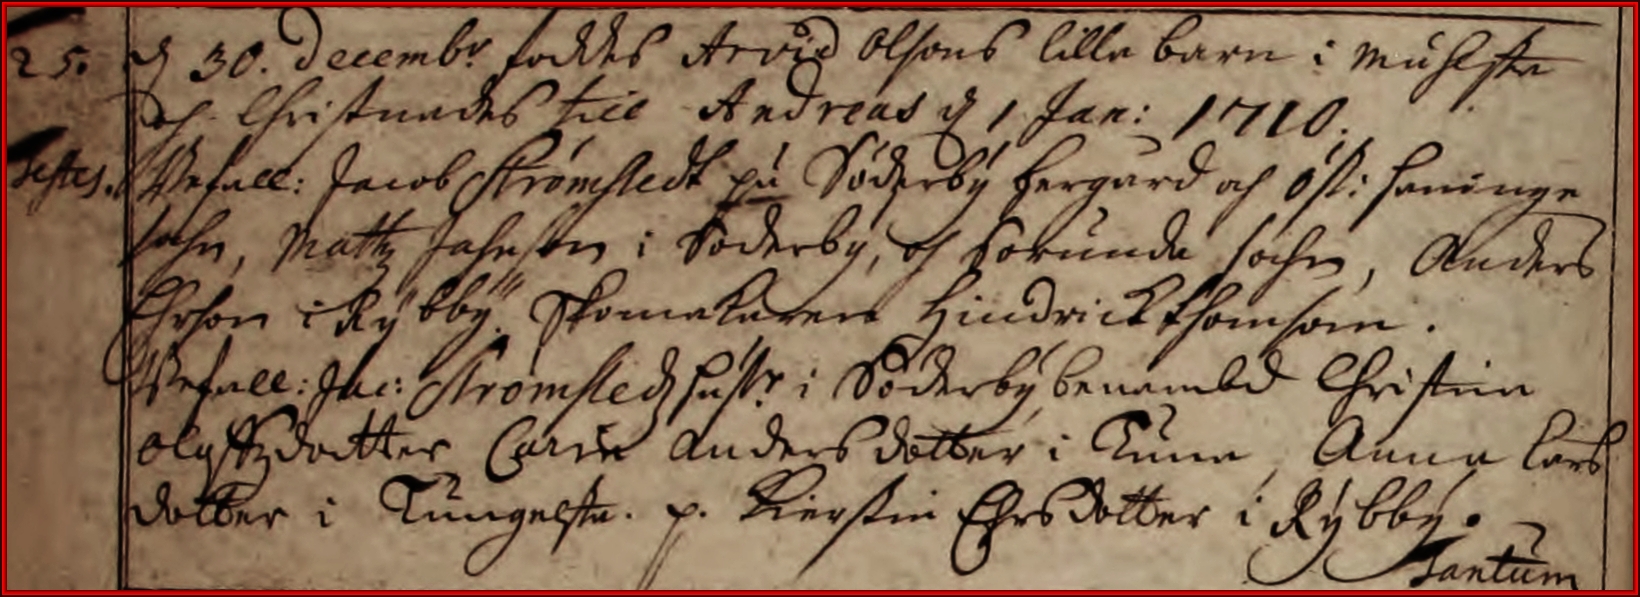 25. d 30. Decembr. föddes Arvid Olsons lilla barn i Muhlsta
och Christnades till Andreas d 1 Jan: 1710.
Testes. Wefall: Jacob Strömstedt på Söderby hergård och Öst: haninge
sochn, Mattz Jahnson i Söderby, och Sorunda sochn, Anders
Ehrson i Rÿbbÿ. Skomakaren Hindrick Thomson.
Wefall: Jac: Strömstedz hustr. i Söderbÿ benambd Christin
Oloffzdotter Carin Anders dotter i Tuna, Anna Lars
dotter i Tungelsta. p. Kierstin Ehrsdotter i Rÿbbÿ.
Tantum